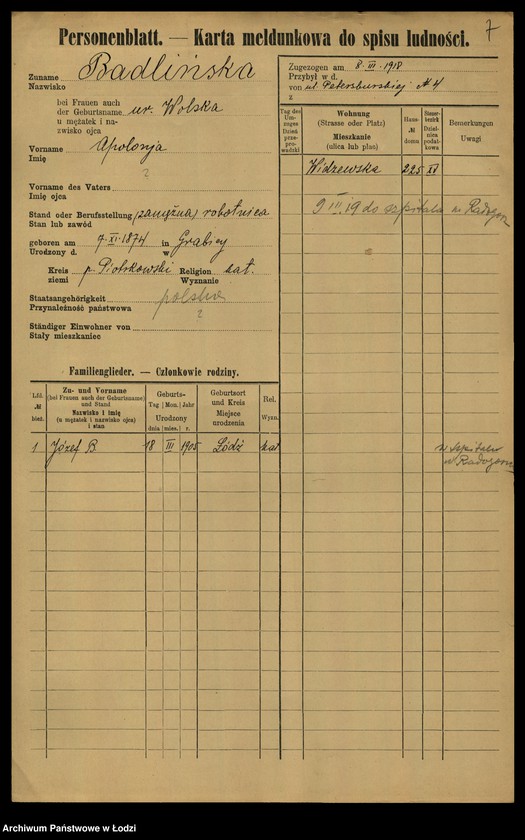 7
Personenblatt. — Karta meldunkowa do spisu ludności.
Zuname Badlińska
Nazwisko
bei Frauen auch
der Geburtsname ur. Wolska
u mężatek i na-
zwisko ojca
Vorname Apolonja
Imię
?
Vorname des Vaters
Imię ojca
Stand oder Berufsstellung (zamężna) robotnica
Stan lub zawód
geboren am 7·XI·1874 in Grabicy
Urodzony d. w
Kreis p. Piotrkowski Religion kat.
ziemi Wyznanie
Staatsangehörigkeit polska
Przynależność państwowa
?
Ständiger Einwohner von
Stały mieszkaniec
Zugezogen am 8·III·1918
Przybył w d.
von ul. Petersburskiej № 4
z
Tag des Um-zuges Dzień prze-pro-wadzski
Wohnung (Strasse oder Platz) Mieszkanie (ulica lub plac)
Haus- № domu
Bezer-bezirk Dziel-nica podat-kowa
Bemerkungen Uwagi
Widzewska 225 XI
9 III 19 do szpitala w Radogon
Familienglieder. — Członkowie rodziny.
Lfd. № bież.
Zu- und Vorname (bei Frauen auch der Geburtsname) und Stand Nazwisko i imię (u mężatek i nazwisko ojca) i stan
Geburts- Tag Mon. Jahr Urodzony dnia mies. r.
Geburtsort und Kreis Miejsce urodzenia
Rel. Wyzn.
1 Józef B. 18 III 1905 Łódź kat
w szpitalu
w Radogon
Archiwum Państwowe w Łodzi